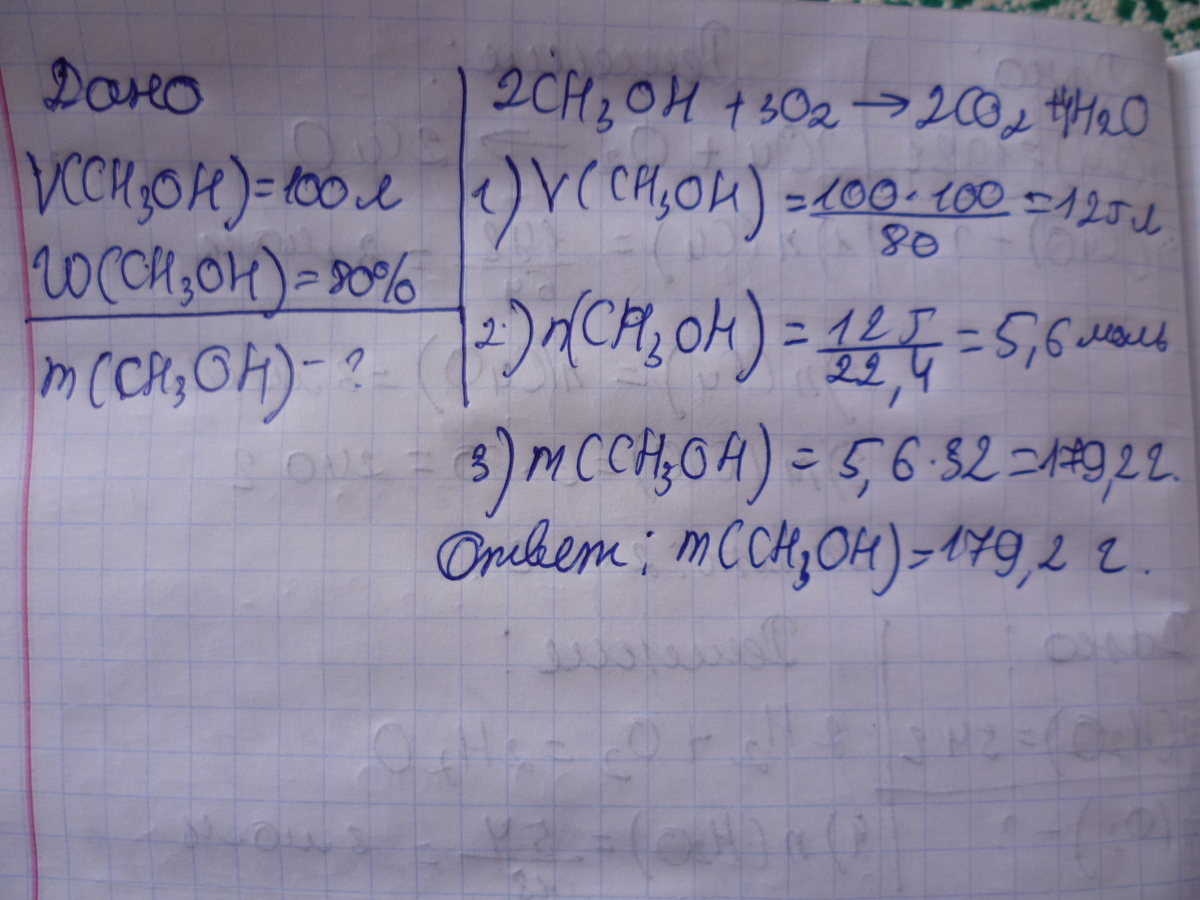 Дано
V(CH₃OH)=100л
W(CH₃OH)=80%
m(CH₃OH)-?
2CH₃OH +3O₂ → 2CO₂ +4H₂O
1) V(CH₃OH) = 100·100/80 = 125л
2.) n(CH₃OH) = 125/22,4 = 5,6 моль
3) m(CH₃OH) = 5,6·32=179,2 г.
Ответ: m(CH₃OH)=179,2 г.